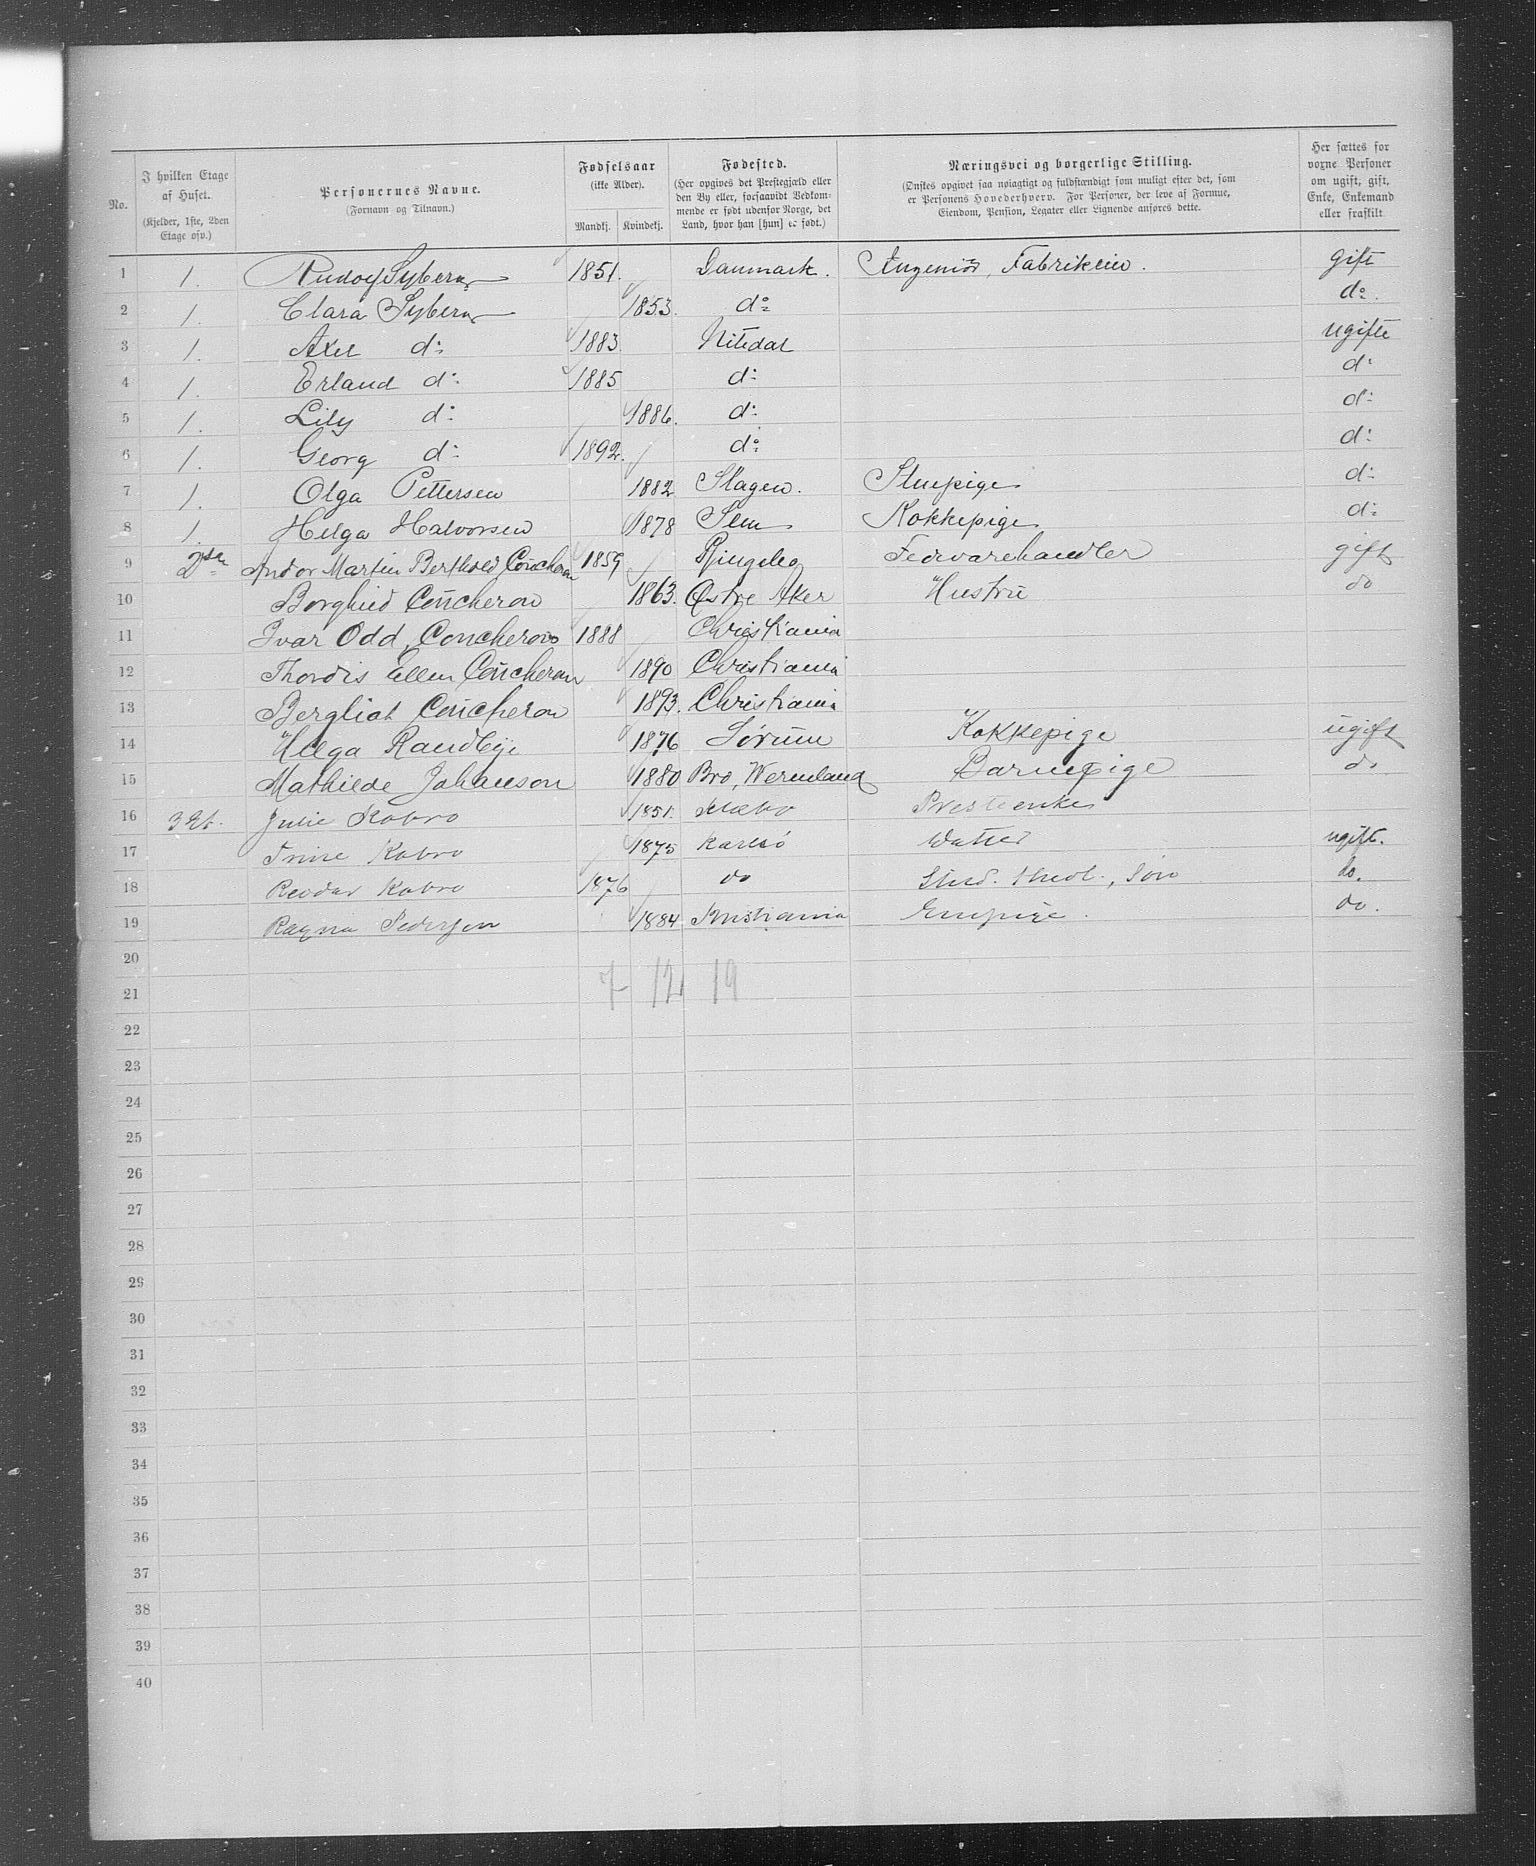 No.
I hvilken Etage af Huset. (Kjelder, 1ste, 2den Etage osv.)
Personernes Navne. (Fornavn og Tilnavn.)
Fødselsaar (ikke Alder). Mandkj. Kvindekj.
Fødested. (Her opgives det Prestegjæld eller den By eller, forsaavidt Vedkommende er født udenfor Norge, det Land, hvor han [hun] er født.)
Næringsvei og borgerlige Stilling. (Ønskes opgivet saa nøiagtigt og fuldstændigt som muligt efter det, som er Personens Hovederhverv. For Personer, der leve af Formue, Eiendom, Pension, Legater eller Lignende anføres dette.
Her sættes for voxne Personer om ugift, gift, Enke, Enkemand eller fraskilt
1 1. Rudolf Syberg 1851. Danmark. Ingeniør, Fabrikeier. gift
2 1. Clara Syberg 1853. do do.
3 1. Axel do 1883 Nitedal ugifte
4 1. Erland do 1885 do do
5 1. Lily do 1886. do do
6 1. Georg do 1892. do do
7 1. Olga Pettersen 1882 Slagen. Stuepige do
8 1. Helga Halvorsen 1878 Sem Kokkepige do
9 2den Andor Martin Berthold Coucheron 1859 Ringebo Fedevarehandler gift
10 Borghild Coucheron 1863. Østre Aker Hustru do
11 Ivar Odd Coucheron 1888 Christiania
12 Thordis Ellen Coucheron 1890 Christiania
13 Bergliot Coucheron 1893. Christiania
14 Helga Randbye 1876 Sørum Kokkepige ugift
15 Mathilde Johanson 1880 Bro, Wermland Barnepige do
16 3 Et. Julie Kobro 1851. Prestienke
17 Trine Kobro 1875 Karlsö Datter ugift.
18 Reodar Kobro 1876 do Stud. theol., Søn do.
19 Ragna Pedersen 1884 Kristiania Enepige. do.
20
21 7 12 19
22
23
24
25
26
27
28
29
30
31
32
33
34
35
36
37
38
39
40